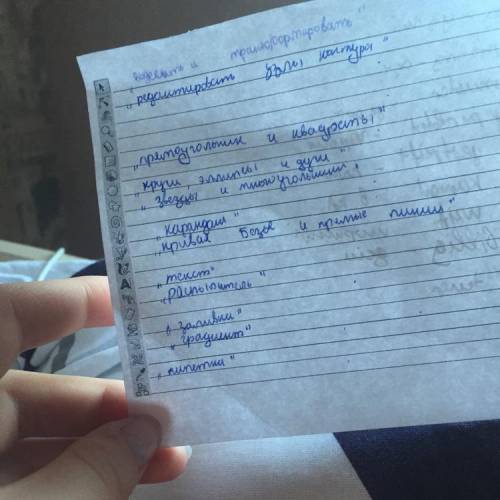 „выделить и трансформировать"
„редактировать узлы контура"
„прямоугольник и квадраты"
„круги, эллипсы и дуги"
„звезды и многоугольники"
„карандаш"
„кривая Безье и прямые линии"
„текст"
„распылитель"
„заливки"
„градиент"
„пипетка"